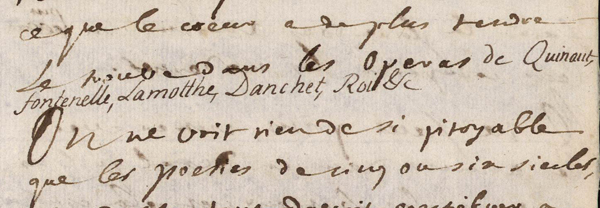 ce que le coeur a de plus tendre
se trouve dans les Operas de Quinaut,
Fontenelle, Lamotthe, Danchet, Roi &c
On ne voit rien de si pitoyable
que les poesies de cinq ou six siecles,